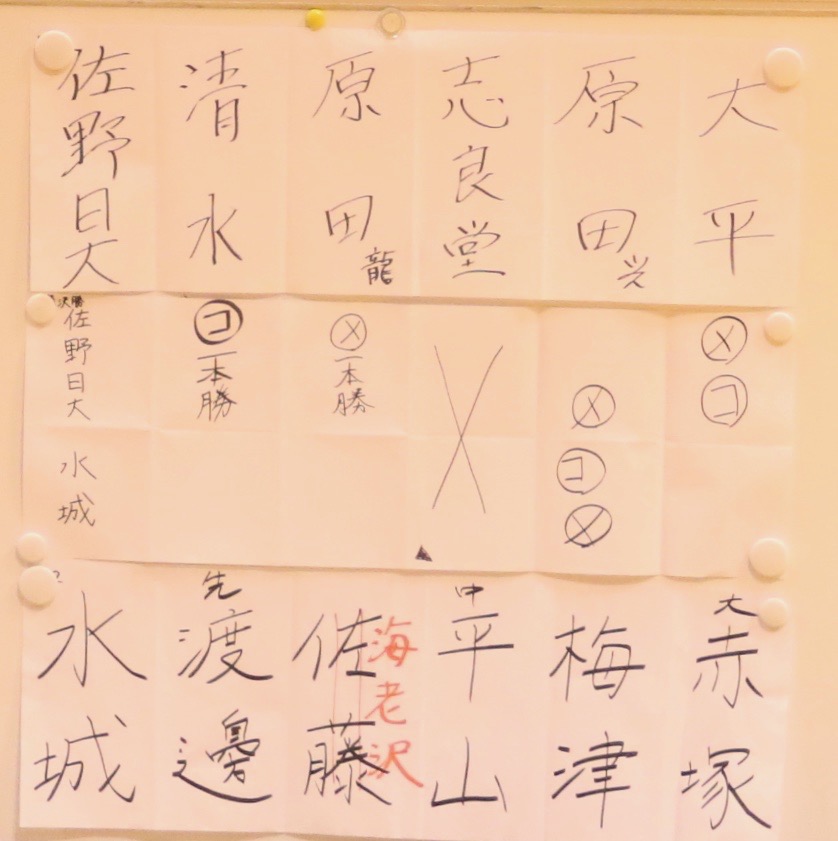 佐野日大
清水
原田龍
志良堂
原田
大平
決勝
佐野日大
水城
コ
一本勝
メ
一本勝
メ
コ
メ
メ
コ
水城
先
渡邊
佐藤
海老沢
中
平山
梅津
大
赤塚